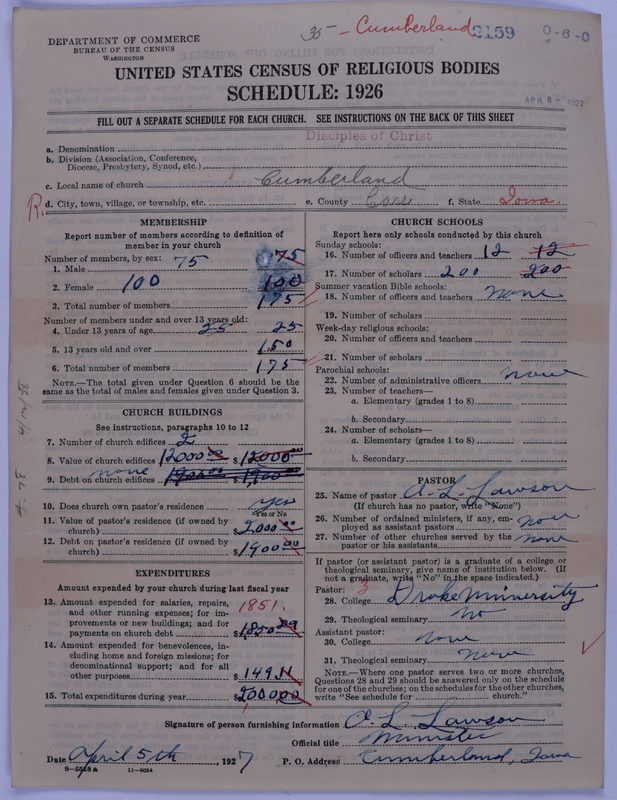 35 - Cumberland 3159 0-6-0
DEPARTMENT OF COMMERCE
BUREAU OF THE CENSUS
WASHINGTON
UNITED STATES CENSUS OF RELIGIOUS BODIES
SCHEDULE: 1926
APR 8 - 1927
FILL OUT A SEPARATE SCHEDULE FOR EACH CHURCH. SEE INSTRUCTIONS ON THE BACK OF THIS SHEET
Disciples of Christ
a. Denomination
b. Division (Association, Conference,
Diocese, Presbytery, Synod, etc.)
c. Local name of church Cumberland
R. d. City, town, village, or township, etc. e. County Cass f. State Iowa.
MEMBERSHIP
Report number of members according to definition of
member in your church
Number of members, by sex:
1. Male 75 75
2. Female 100 100
3. Total number of members 175
Number of members under and over 13 years old:
4. Under 13 years of age 25 25
5. 13 years old and over 150
6. Total number of members 175
NOTE.—The total given under Question 6 should be the
same as the total of males and females given under Question 3.
CHURCH BUILDINGS
See instructions, paragraphs 10 to 12
7. Number of church edifices 2
8. Value of church edifices 12000 00 $12000 00
9. Debt on church edifices none 1900 00 $1,900 00
10. Does church own pastor's residence yes
Yes or No
11. Value of pastor's residence (if owned by
church) $2,000 00
12. Debt on pastor's residence (if owned by
church) $1900 00
EXPENDITURES
Amount expended by your church during last fiscal year
13. Amount expended for salaries, repairs, 1851.
and other running expenses; for im-
provements or new buildings; and for
payments on church debt $1850 89
14. Amount expended for benevolences, in-
cluding home and foreign missions; for
denominational support; and for all
other purposes $149.11
15. Total expenditures during year $2000 00
CHURCH SCHOOLS
Report here only schools conducted by this church
Sunday schools:
16. Number of officers and teachers 12 12
17. Number of scholars 200 200
Summer vacation Bible schools:
18. Number of officers and teachers none
19. Number of scholars
Week-day religious schools:
20. Number of officers and teachers
21. Number of scholars
Parochial schools:
22. Number of administrative officers none
23. Number of teachers—
a. Elementary (grades 1 to 8)
b. Secondary
24. Number of scholars—
a. Elementary (grades 1 to 8)
b. Secondary
PASTOR
25. Name of pastor O. L. Lawson
(If church has no pastor, write "None")
26. Number of ordained ministers, if any, em-
ployed as assistant pastors none
27. Number of other churches served by the
pastor or his assistants none
If pastor (or assistant pastor) is a graduate of a college or
theological seminary, give name of institution below. (If
not a graduate, write "No" in the space indicated.)
Pastor: 3
28. College Drake University
29. Theological seminary No
Assistant pastor:
30. College none
31. Theological seminary none
NOTE.—Where one pastor serves two or more churches,
Questions 28 and 29 should be answered only on the schedule
for one of the churches; on the schedules for the other churches,
write "See schedule for church."
Signature of person furnishing information O. L. Lawson
Official title Minister
Date April 5th, 1927 P. O. Address Cumberland, Iowa
8-5518 a 11-9054